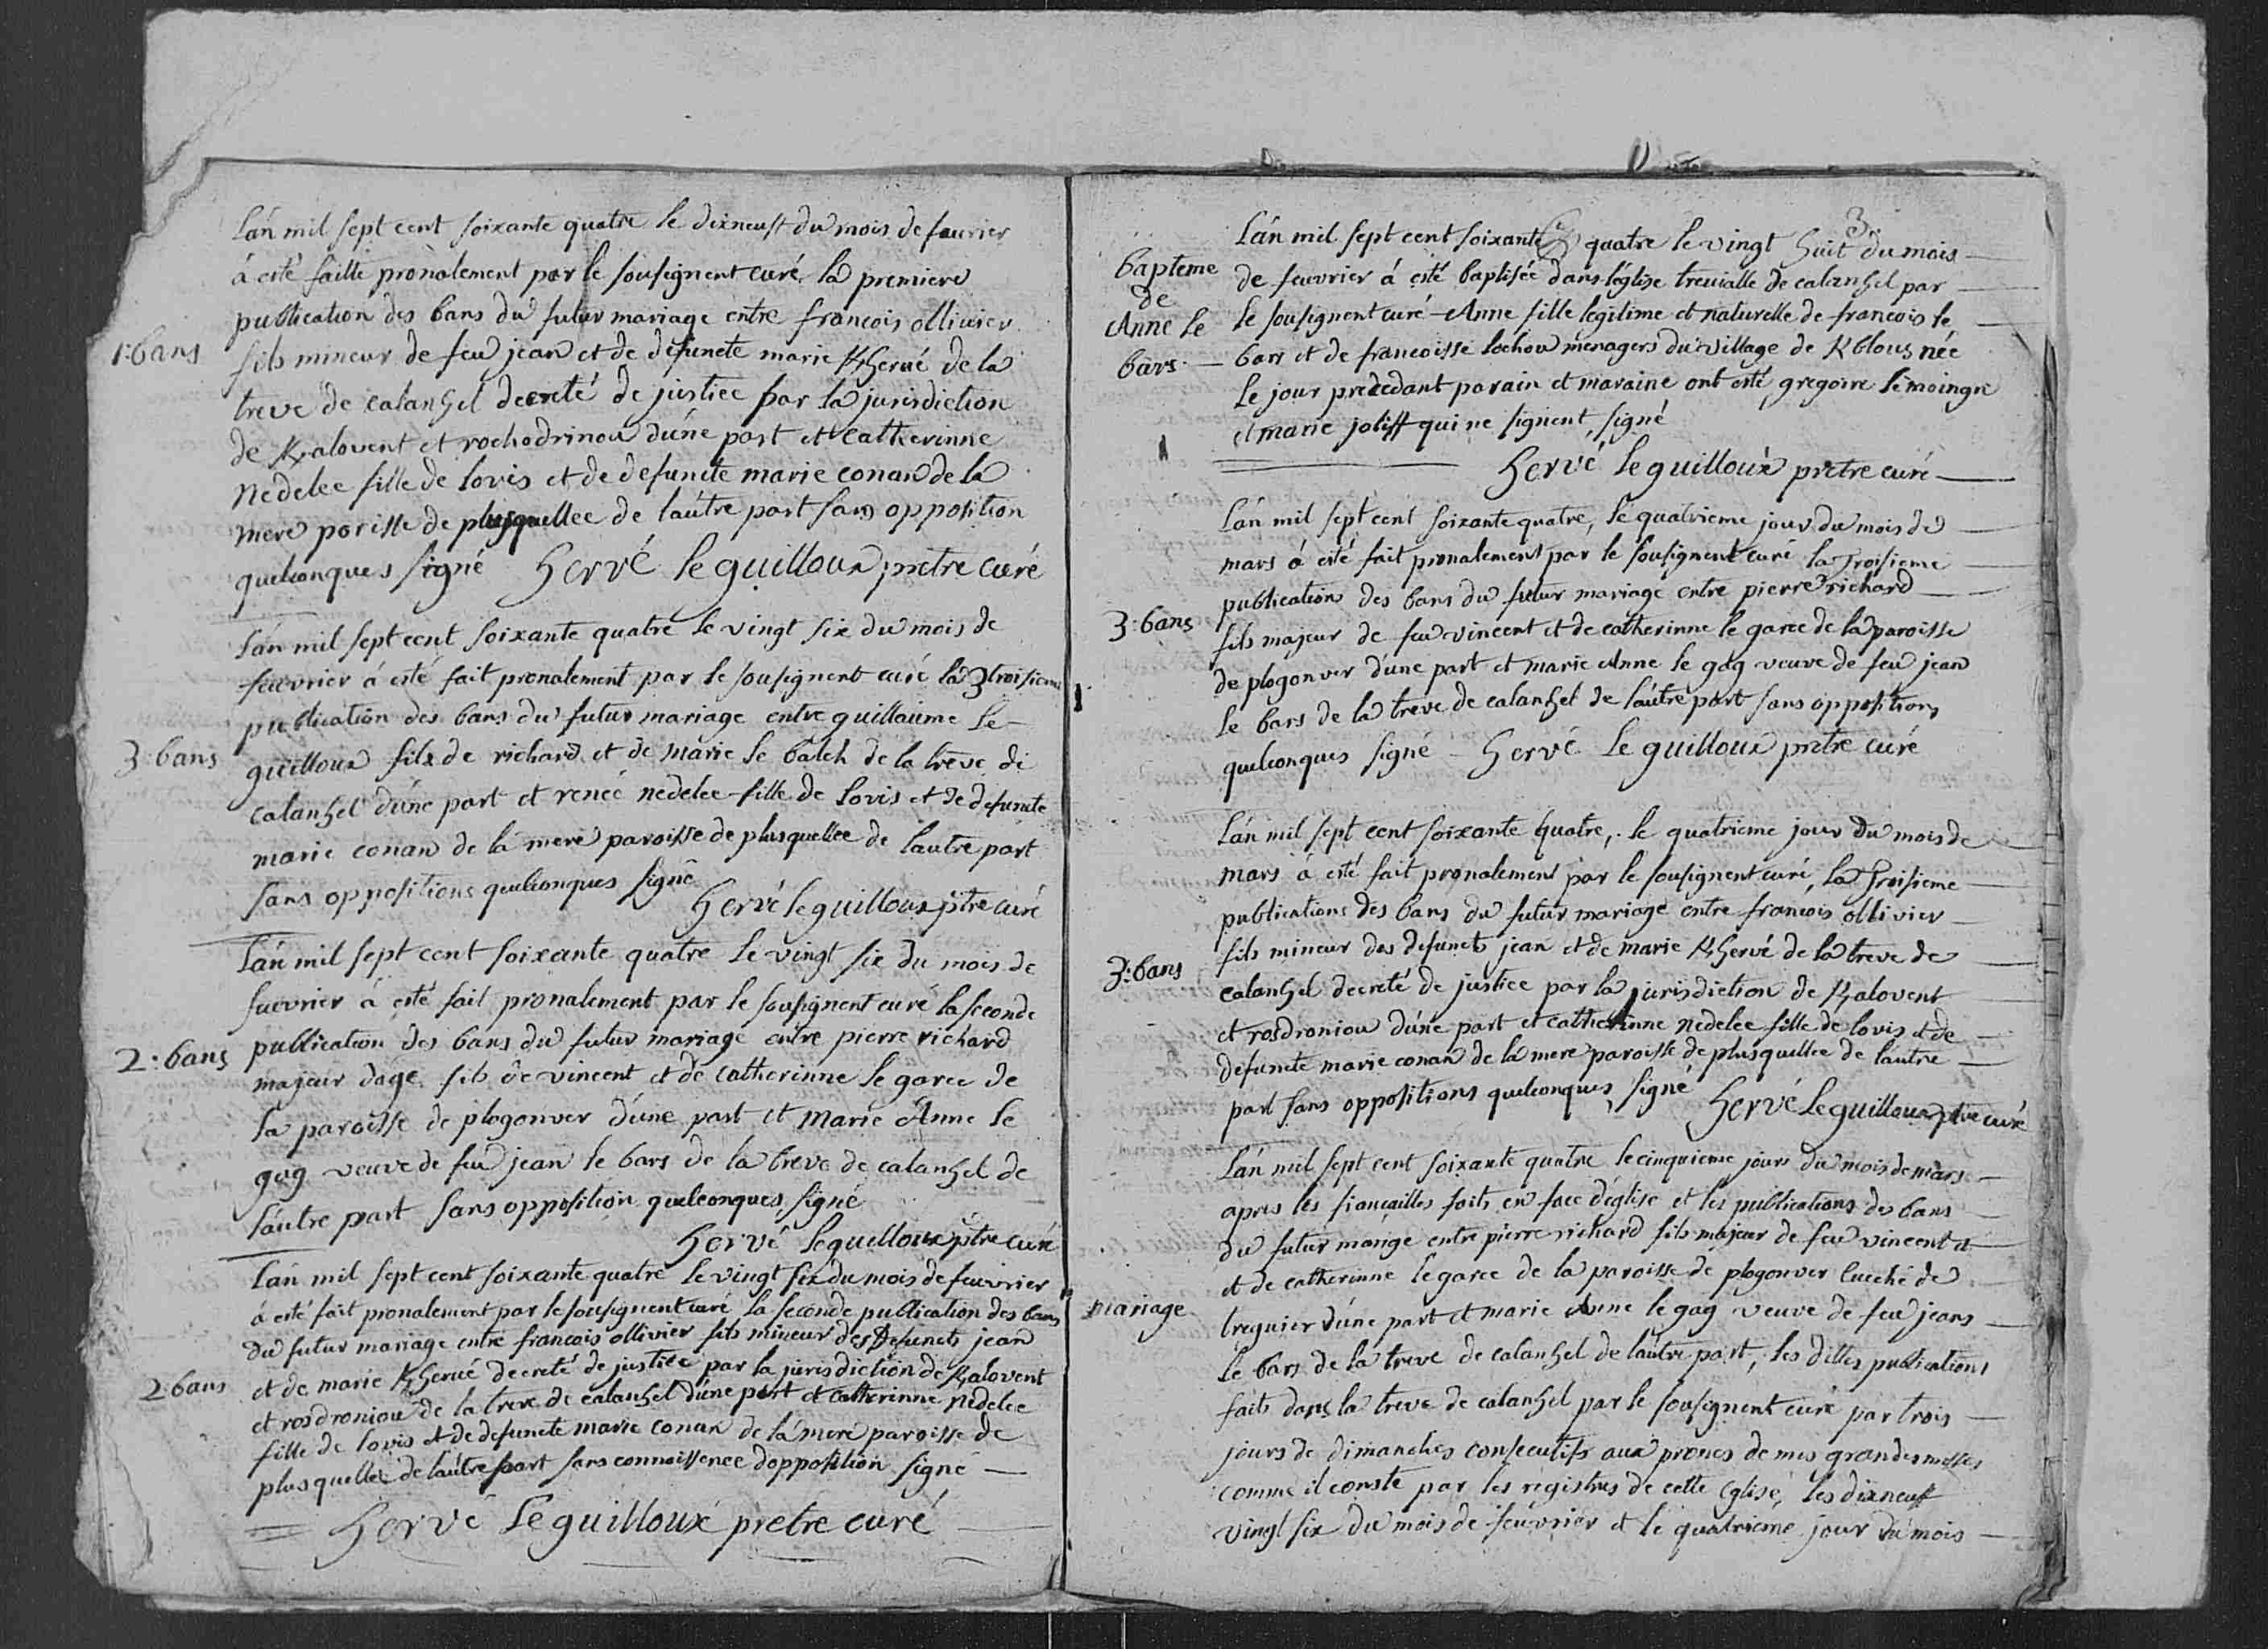 Lán mil sept cent soixante quatre le dixneuft du mois de feuvrier
á esté faitte prónalement par le sousignent curé la premiere
publication des bans du futur mariage entre francois ollivier
1: bans
fils mineur de feu jean et de défuncte marie Khervé de la
treve de calanhel decreté de justice par la jurisdiction
de Kalovent et rochodriniou d'úne part et Catherinne
Nedelec fille de lovis et de defuncte marie conan de la
mere porisse de plusquellec de láutre part sans opposition
quelconques signé Hervé le guilloux, pretre curé
Lán mil sept cent soixante quatre le vingt six du mois de
feuvrier á esté fait pronalement par le sousignent curé la 3 troisieme
publication des bans du futur mariage entre guillaume le
3: bans
guilloux fils de richard et de marie le balch de la treve de
calanhel d'úne part et renée nedelec fille de lovis et de defuncte
marie conan de la mere paroisse de plusquellec de lautre part
sans oppositions quelconques signé
Hervé le guilloux ptre curé
Lán mil sept cent soixante quatre le vingt six du mois de
feuvrier á esté fait pronalement par le sousignent curé la seconde
2: bans
publication des bans du futur mariage entre pierre richard
majeur dage fils de vincent et de catherinne le garec de
la paroisse de plogonver d'úne part et marie Anne le
gag veuve de feu jean le bars de la treve de calanhel de
láutre part sans opposition quelconques, signé
Hervé le guilloux ptre curé
Lán mil sept cent soixante quatre le vingt six du mois de feuvrier
á esté fait pronalement par le sousignent curé la seconde publication des bans
du futur mariage entre francois ollivier fils mineur des defuncts jean
2: bans
et de marie Khervé decreté de justice par la jurisdiction de Kalovent
et rosdroniou de la treve de calanhel d'úne part et Catherinne Nedelec
fille de lovis et de defuncte marie conan de lá mere paroisse de
plusquellec de láutre part sans connoissence dopposition signé
Hervé Le guilloux pretre curé
3
Lán mil sept cent soixante quatre le vingt huit du mois
bapteme de Anne le bars
de feuvrier á esté baptisée dans léglise treuialle de calanhel par
le sousignent curé Anne fille legitime et naturelle de francois le
bars et de francoisse lochou ménagers du village de Kblous née
le jour precedant parain et maraine ont esté gregoire le moingne
et marie joliff qui ne signent, signé
Hervé le guilloux pretre curé
Lán mil sept cent soixante quatre, le quatrieme jour du mois de
mars á esté fait pronalement par le sousignent curé la Troisieme
publications des bans du futur mariage entre pierre richard
3: bans
fils majeur de feu vincent et de catherinne le garec de la paroisse
de plogonver d'une part et marie Anne le gag veuve de feu jean
le bars de la treve de calanhel de láutre part sans oppositions
quelconques signé Hervé Le guilloux pretre curé
Lán mil sept cent soixante quatre, le quatrieme jour du mois de
mars á esté fait pronalement par le sousignent curé, la Troisieme
publications des bans du futur mariage entre francois ollivier
fils mineur des defuncts jean et de marie Khervé de la treve de
3: bans
calanhel decreté de justice par la jurisdiction de Kalovent
et rosdroniou d'úne part et catherinne nedelec fille de lovis et de
defuncte marie conan de la mere paroisse de plusquellec de lautre
part sans oppositions quelconques, signé Hervé Le guilloux ptre curé
Lán mil sept cent soixante quatre le cinquieme jours du mois de mars
apres les fiancailles faits en face déglise et les publications des bans
du futur marige entre pierre richard fils majeur de feu vincent et
et de catherinne le garec de la paroisse de plogonver Eveché de
mariage
treguier d'úne part et marie Anne le gag veuve de feu jean
le bars de la treve de calanhel de láutre part, les dittes publications
faits dans la treve de calanhel par le sousignent curé par trois
jours de dimanches consecutifs aux prones de mes grandes messes
comme il conste par les registres de cette Eglise, les dixneuft
vingt six du mois de feuvrier et le quatrieme jour du mois